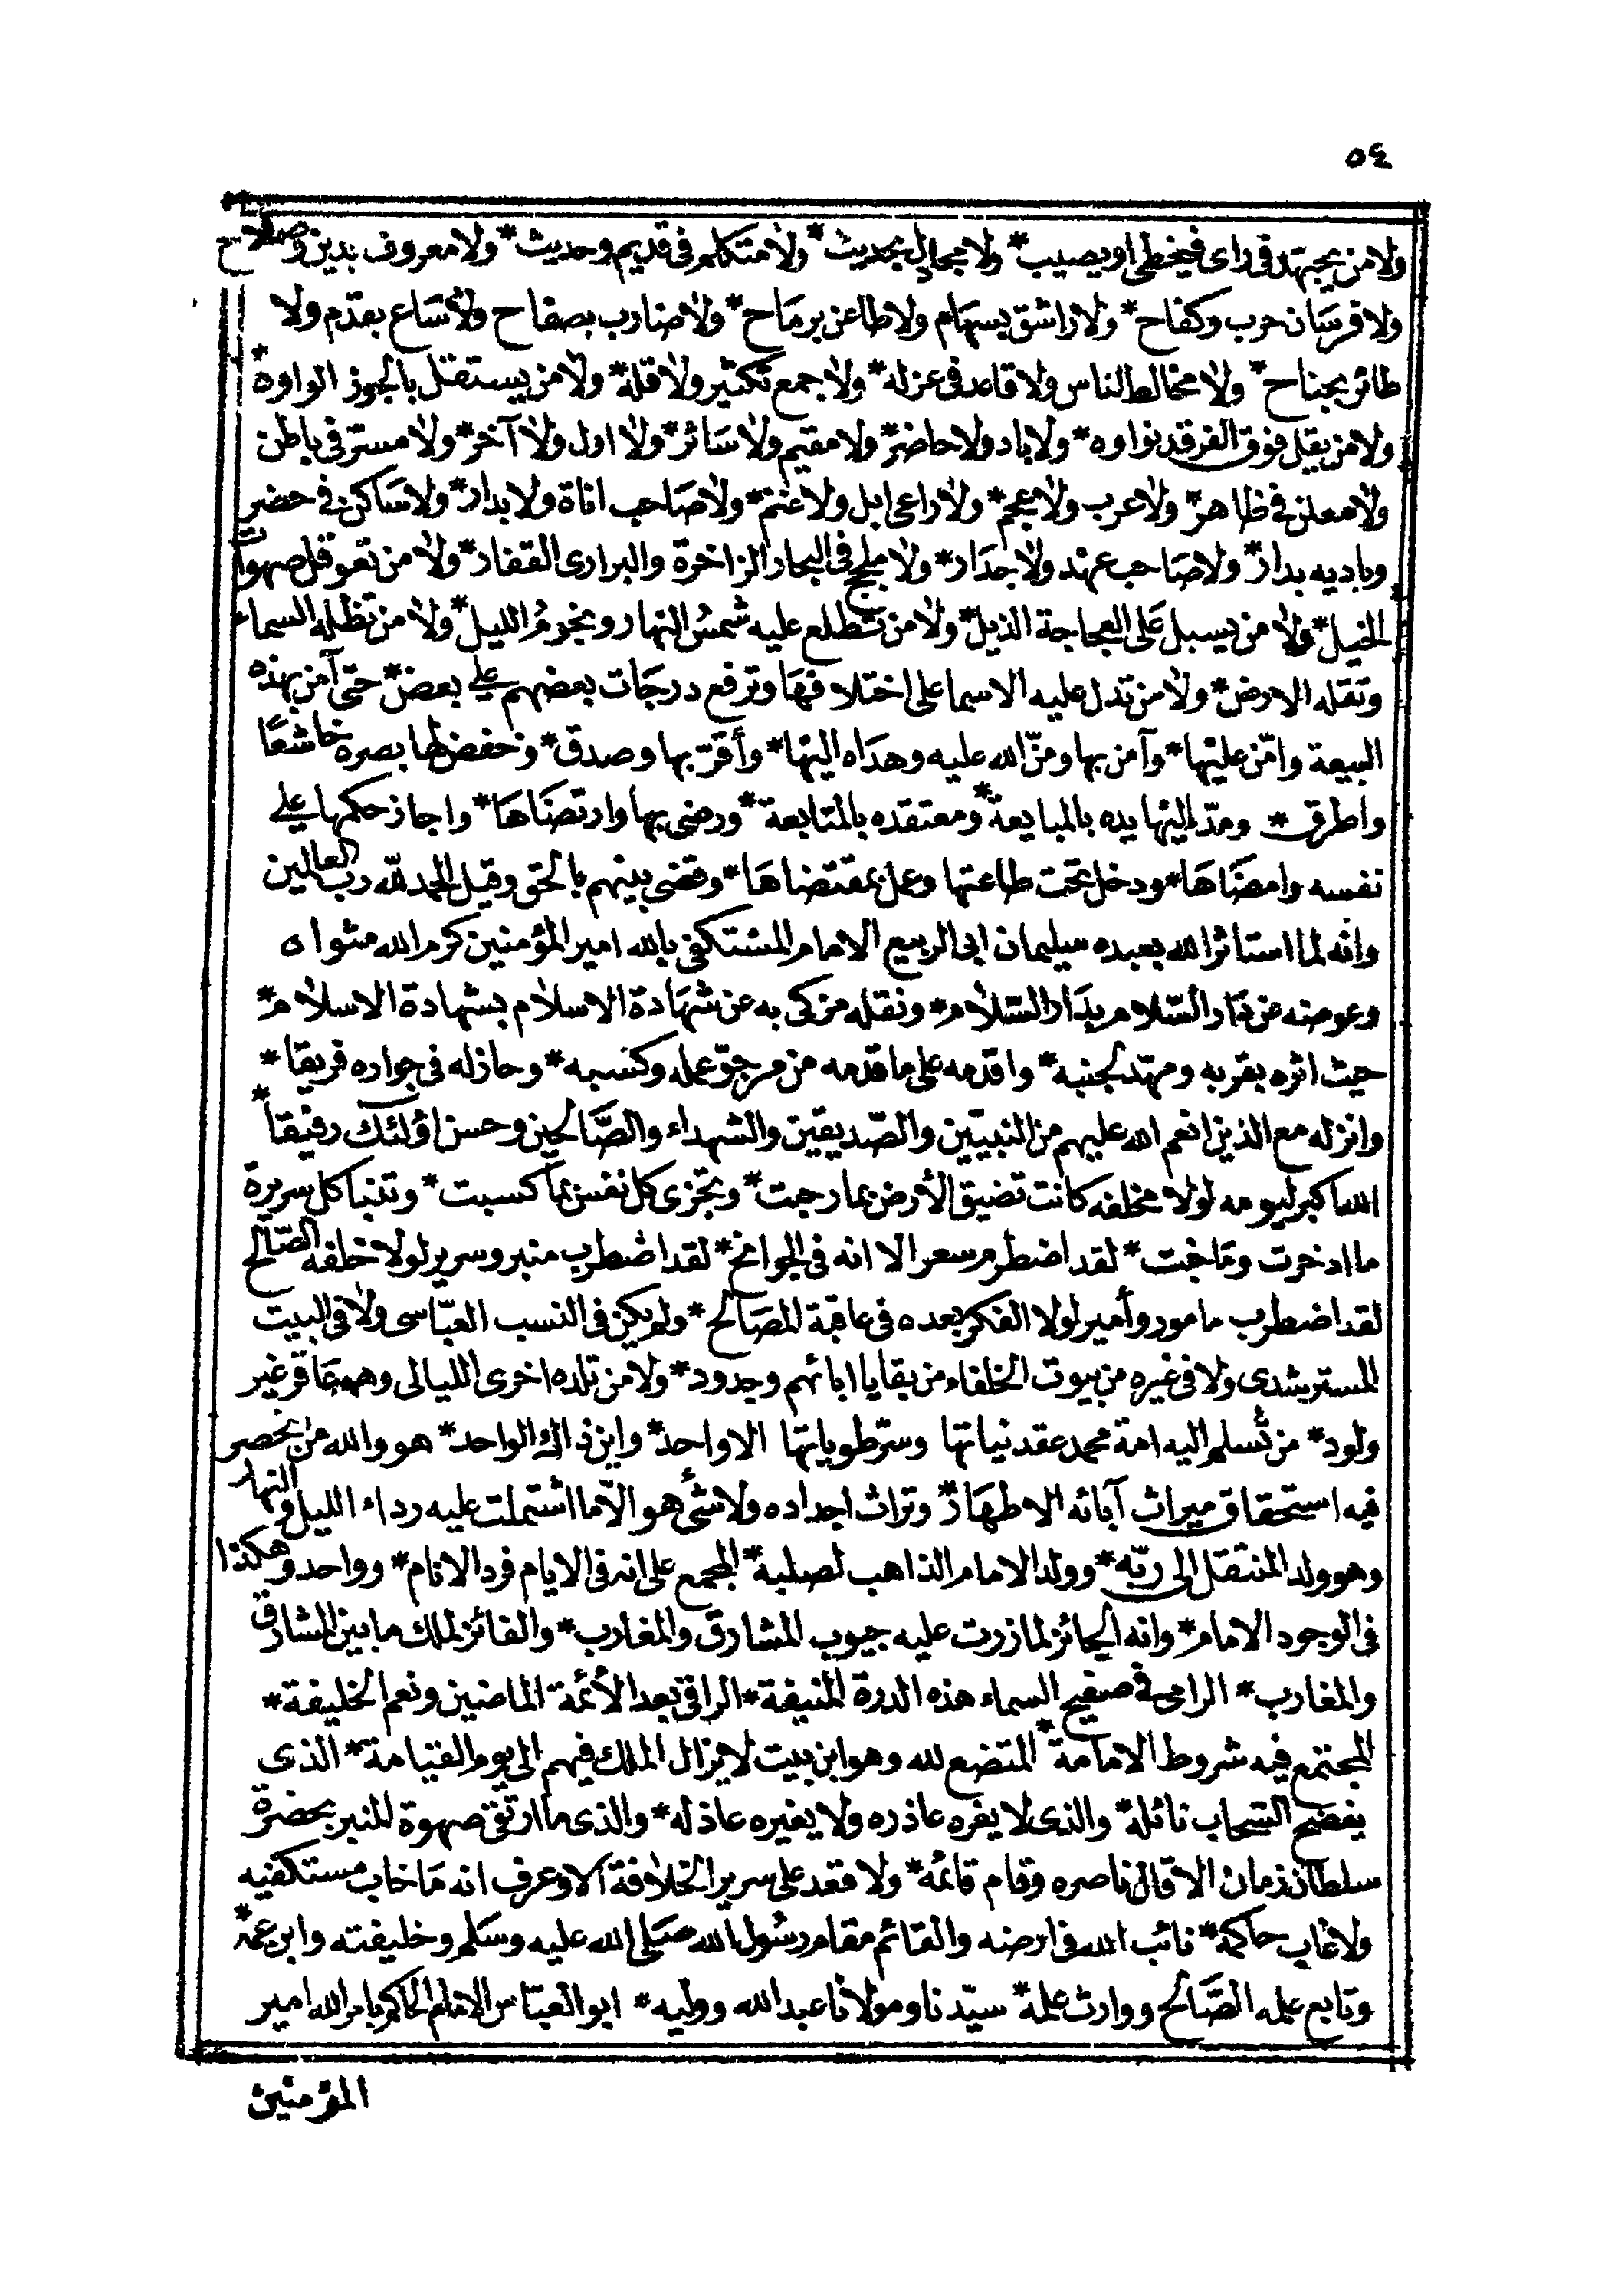 ٥٤
ولا من يجتهد فى راى فيخطى او يصيب * ولا مجادل بحديث * ولا متكلم فى قديم وحديث * ولا معروف بدين وصلاح
ولا فرسان حرب وكفاح * ولا راشق بسهام ولا طاعن برماح * ولا ضارب بصفاح ولا ساع بقدم ولا
طائر بجناح * ولا مخالط الناس ولا قاعد فى عزله * ولا جمع تكثير ولا قلة * ولا من يستقل بالجوز الواوه *
ولا من يقل فوق الفرقد نواوه * ولا باد ولا حاضر * ولا مقيم ولا سائر * ولا اول ولا آخر * ولا مستر فى باطن
ولا معلن فى ظاهر * ولا عرب ولا عجم * ولا راعى ابل ولا غنم * ولا صاحب اناة ولا بدار * ولا ساكن فى حضر
وباديه بدار * ولا صاحب عهد ولا جدار * ولا ملجج فى البحار الزاخرة والبرارى القفار * ولا من تعوقل صهوات
الخيل * ولا من يسبل على العجاجة الذيل * ولا من تطلع عليه شمس النهار ونجوم الليل * ولا من تظله السماء
وتقله الارض * ولا من تدل عليه الاسما على اختلافها وترفع درجات بعضهم على بعض * حتى آمن بهذه
البيعة وامّن عليها * وآمن بها ومنّ الله عليه وهداه اليها * وأقرّ بها وصدق * وخفض لها بصره خاشعًا
واطرق * ومدّ اليها يده بالمبايعة * ومعتقده بالمتابعة * ورضى بها وارتضاها * واجاز حكمها على
نفسه وامضاها * ودخل تحت طاعتها وعمل بمقتضاها * وقضى بينهم بالحق وقيل الحمد لله رب العالمين
وانه لما استاثر الله بعبده سليمان ابى الربيع الامام المستكفى بالله امير المؤمنين كرم الله مثواه
وعوضه عن دار السّلام بدار السّلام * ونقله مزكى به عن شهادة الاسلام بشهادة الاسلام *
حيث اثره بقربه ومهّد لجنبه * واقدمه على ما قدمه من مرجوّ عمله وكسبه * وحاز له فى جواره فريقا *
وانزله مع الذين انعم الله عليهم من النبيّين والصّديقين والشهداء والصّالحين وحسن اؤلئك رفيقًا *
الله اكبر ليومه لولا مخلفه كانت تضيق الأرض بما رحبت * وتجزى كل نفس بما كسبت * وتنبا كل سريرة
ما ادخرت وما خبت * لقد اضطرم سعر الا انه فى الجوانح * لقد اضطرب منبر وسرير لولا خلفه الصّالح
لقد اضطرب مامور وأمير لولا الفكر بعده فى عاقبة المصالح * ولم يكن فى النسب العبّاسى ولا فى البيت
المسترشدى ولا فى غيره من بيوت الخلفاء من بقايا ابائهم وجدود * ولا من تلده اخرى الليالى وهى عاقر غير
ولود * من تُسلم اليه امة محمد عقد نياتها وسرّ طوياتها الا واحد * واين ذالك الواحد * هو والله من انحصر
فيه استحقاق ميراث آبائه الاطهار * وتراث اجداده ولا شئ هو الّا ما اشتملت عليه رداء الليل والنهار
وهو ولد المنتقل الى ربّه * وولد الامام الذاهب لصلبه * المجمع على انه فى الايام فرد الانام * وواحد وهكذا
فى الوجود الامام * وانه الحائز لما زرت عليه جيوب المشارق والمغارب * والفائز لملك ما بين المشارق
والمغارب * الراقى فى صفيح السماء هذه الذروة المنيفة * الراقى بعد الأئمة الماضين ونعم الخليفة *
المجتمع فيه شروط الامامة * المتضع لله وهو ابن بيت لا يزال الملك فيهم الى يوم القيامة * الذى
يفضح السحاب نائله * والذى لا يغره عاذره ولا يغيره عاذله * والذى ما ارتقى صهوة المنبر بحضرة
سلطان زمان الا قال ناصره وقام قائمه * ولا قعد على سرير الخلافة الا وعرف انه ما خاب مستكفيه
ولا غاب حاكمه * نائب الله فى ارضه والقائم مقام رسُول الله صلى الله عليه وسلم وخليفته وابن عمه *
وتابع عمله الصّالح ووارث علمه * سيّدنا ومولانا عبد الله ووليه * ابو العبّاس الامام الحاكم بامر الله امير
المؤمنين